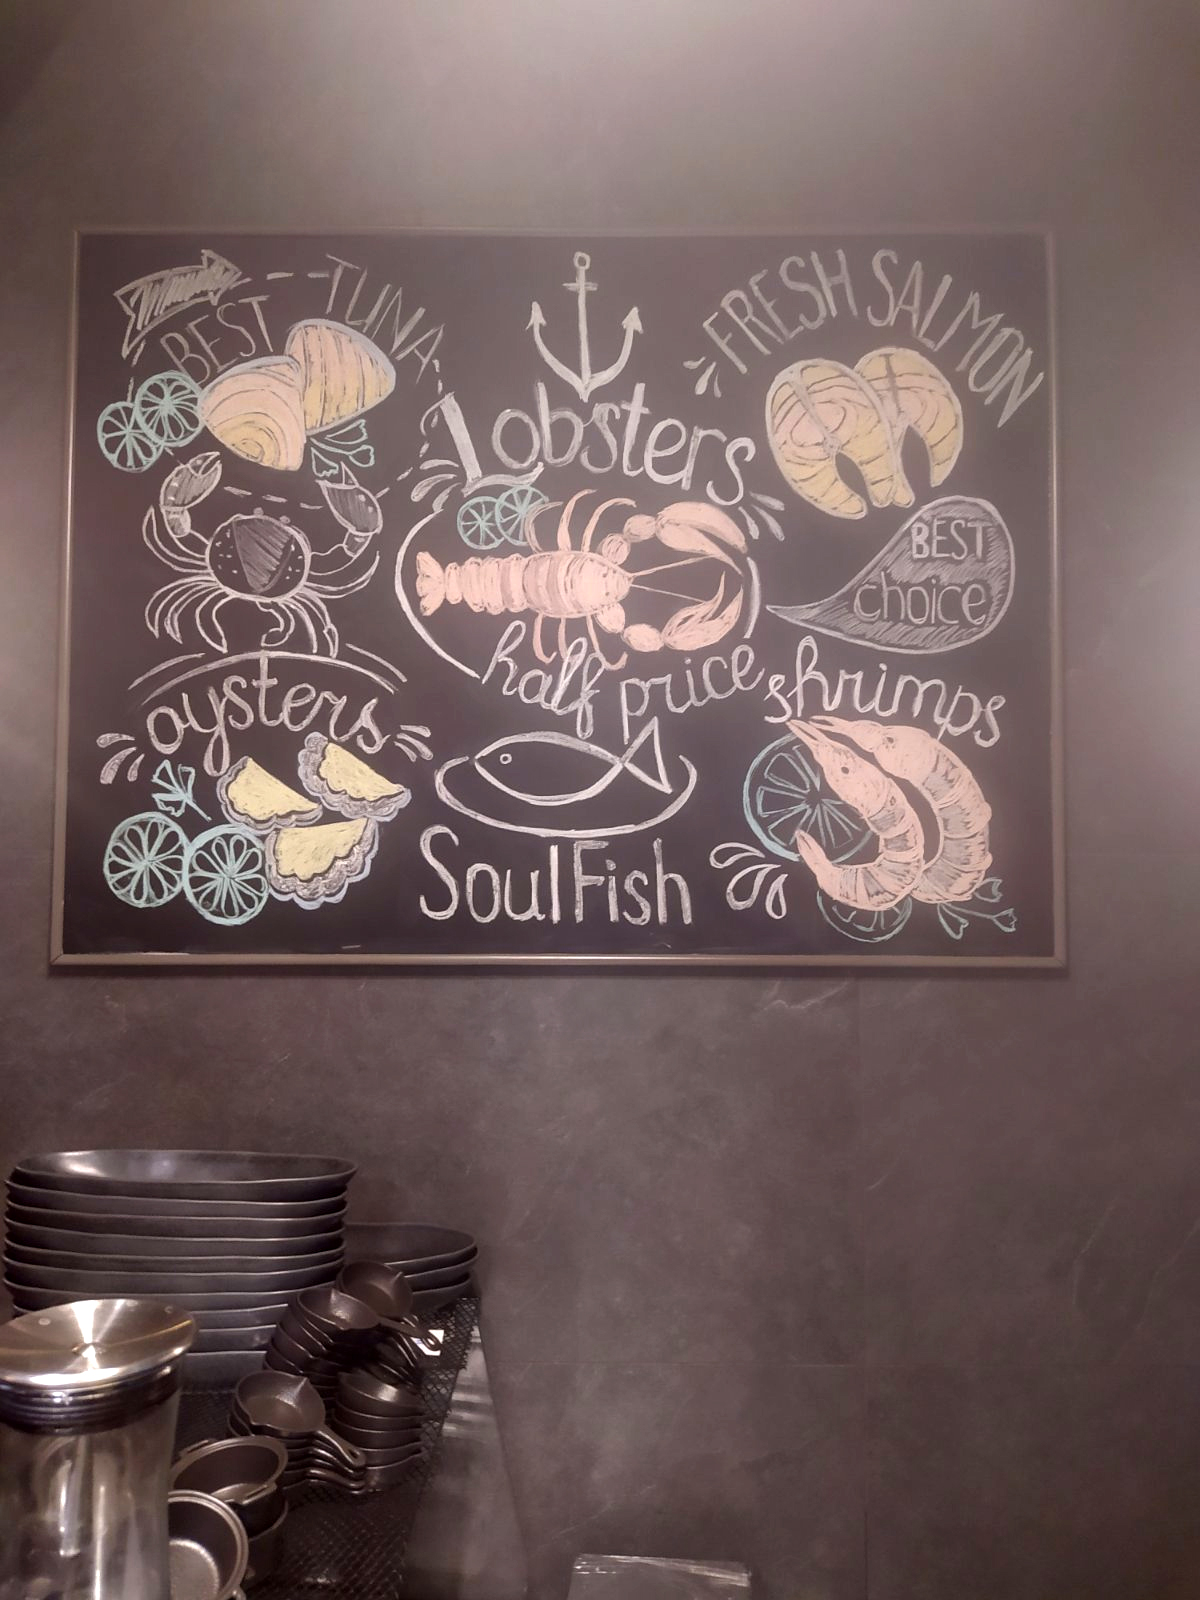 BEST TUNA
Lobsters
half price
FRESH SALMON
BEST
choice
oysters
SoulFish
shrimps